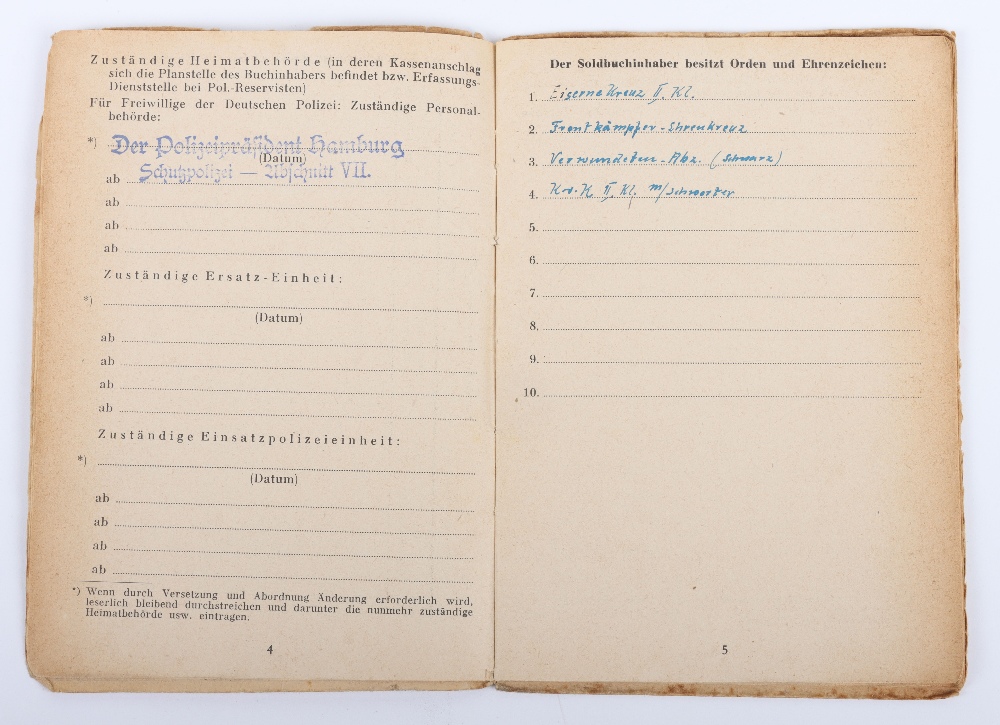 Zuständige Heimatbehörde (in deren Kassenanschlag
sich die Planstelle des Buchinhabers befindet bzw. Erfassungs-
Dienststelle bei Pol.-Reservisten)
Für Freiwillige der Deutschen Polizei: Zuständige Personal-
behörde:
*) Der Polizeipräsident Hamburg
(Datum)
ab Schutzpolizei — Abschnitt VII.
ab
ab
ab
Zuständige Ersatz-Einheit:
*)
(Datum)
ab
ab
ab
ab
Zuständige Einsatzpolizeieinheit:
*)
(Datum)
ab
ab
ab
ab
*) Wenn durch Versetzung und Abordnung Änderung erforderlich wird,
leserlich bleibend durchstreichen und darunter die nunmehr zuständige
Heimatbehörde usw. eintragen.
4
Der Soldbuchinhaber besitzt Orden und Ehrenzeichen:
1. Eiserne Kreuz II. Kl.
2. Frontkämpfer-Ehrenkreuz
3. Verwundeten-Abz. (Schwarz)
4. K.v.K II. Kl. m/Schwerter
5.
6.
7.
8.
9.
10.
5